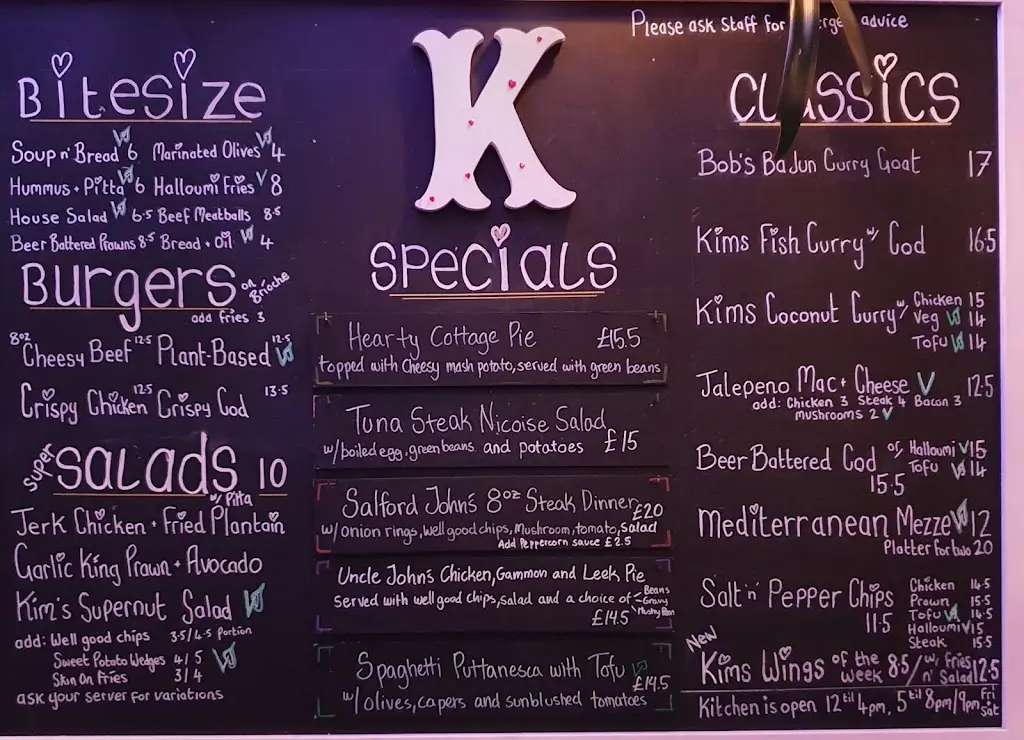 Please ask staff for advice
Bitesize
Soup n' Bread 6 Marinated Olives 4
Hummus + Pitta 6 Halloumi Fries V 8
House Salad 6.5 Beef Meatballs 8.5
Beer Battered Prawns 8.5 Bread + Oil 4
Burgers on Brioche
add fries 3
8oz Cheesy Beef 12.5 Plant-Based 12.5
Crispy Chicken 12.5 Crispy Cod 13.5
Super Salads 10
w/ Pitta
Jerk Chicken + Fried Plantain
Garlic King Prawn + Avocado
Kim's Supernut Salad
add: Well good chips 3.5/4.5 Portion
Sweet Potato Wedges 4/5
Skin On Fries 3/4
ask your server for variations
K
Specials
Hearty Cottage Pie £15.5
topped with Cheesy mash potato, served with green beans
Tuna Steak Nicoise Salad
w/boiled egg, green beans and potatoes £15
Salford John's 8oz Steak Dinner £20
w/onion rings, well good chips, Mushroom, tomato, salad
Add Peppercorn sauce £2.5
Uncle John's Chicken, Gammon and Leek Pie
Served with well good chips, salad and a choice of Beans
Gravy
Mushy Pea
£14.5
Spaghetti Puttanesca with Tofu £14.5
w/olives, capers and sunblushed tomatoes
Classics
Bob's Bajun Curry Goat 17
Kims Fish Curry w/ Cod 16.5
Kims Coconut Curry w/ Chicken 15
Veg 14
Tofu 14
Jalepeno Mac + Cheese V 12.5
add: Chicken 3 Steak 4 Bacon 3
mushrooms 2 V
Beer Battered Cod 15.5 or/ Halloumi V 15
Tofu 14
Mediterranean Mezze 12
Platter for two 20
Salt 'n' Pepper Chips 11.5
Chicken 14.5
Prawn 15.5
Tofu 14.5
Halloumi V 15
Steak 15.5
New
Kims Wings of the week 8.5/ w/ Fries n' Salad 12.5
Kitchen is open 12 til 4pm, 5 til 8pm/9pm Fri Sat